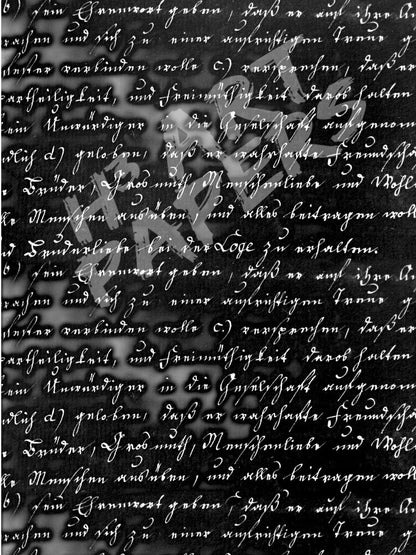 b) sein Ehrenwort geben, daß er auf ihre li
rachen und sich zu einer aufrichtigen Treue g
dester verbinden wolle c.) versprechen, daß er
artheiligkeit, und Freimüthigkeit darob halten
ein Unwürdiger in die Gesellschaft aufgenom
dlich d) geloben, daß er wahrhafte Freundscha
e Brüder, Grosmuth, Menschenliebe und Wohl
ke Menschen ausüben, und alles beitragen wolle
d Bruderliebe bei der Loge zu erhalten.
b) sein Ehrenwort geben, daß er auf ihre li
rachen und sich zu einer aufrichtigen Treue g
dester verbinden wolle c.) versprechen, daß er
artheiligkeit, und Freimüthigkeit darob halten
ein Unwürdiger in die Gesellschaft aufgenom
dlich d) geloben, daß er wahrhafte Freundscha
e Brüder, Grosmuth, Menschenliebe und Wohl
ke Menschen ausüben, und alles beitragen wolle
b) sein Ehrenwort geben, daß er auf ihre li
rachen und sich zu einer aufrichtigen Treue g
ART
PAPERS